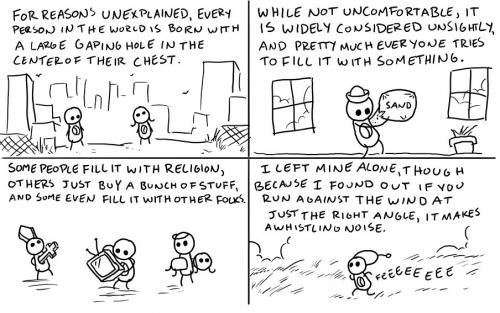 FOR REASONS UNEXPLAINED, EVERY
PERSON IN THE WORLD IS BORN WITH
A LARGE GAPING HOLE IN THE
CENTER OF THEIR CHEST.
WHILE NOT UNCOMFORTABLE, IT
IS WIDELY CONSIDERED UNSIGHTLY,
AND PRETTY MUCH EVERYONE TRIES
TO FILL IT WITH SOMETHING.
SAND
SOME PEOPLE FILL IT WITH RELIGION,
OTHERS JUST BUY A BUNCH OF STUFF,
AND SOME EVEN FILL IT WITH OTHER FOLKS.
I LEFT MINE ALONE, THOUGH
BECAUSE I FOUND OUT IF YOU
RUN AGAINST THE WIND AT
JUST THE RIGHT ANGLE, IT MAKES
A WHISTLING NOISE.
FEEEEEEEE